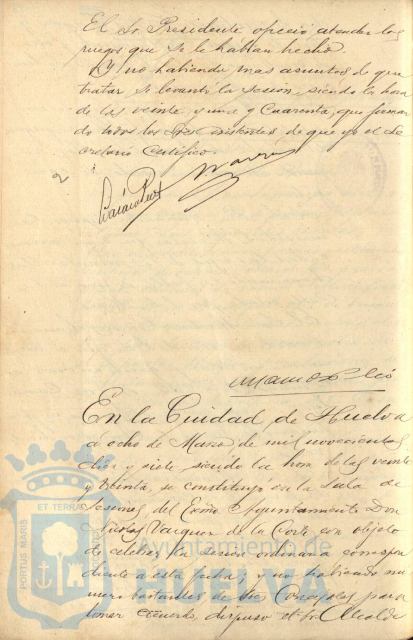 El Sr. Presidente ofreció atender los
ruegos que se le habian hecho.
Y no habiendo mas asuntos de que
tratar se levantó la sesion, siendo la hora
de las veinte y una y Cuarenta, que firman
do todos los Sres asistentes de que yo el Se
cretario Certifico.
2
En la Ciudad de Huelva
a ocho de Marzo de mil novecientos
diez y siete siendo la hora de las veinte
y treinta, se constituyó en la Sala de
sesiones del Excmo Ayuntamiento Don
Nicolas Vazquez de la Corte con objeto
de celebrar la sesion ordinaria correspon
diente a esta fecha, y no habiendo nu
mero bastante de Sres Concejales para
tomar acuerdo, dispuso el Sr. Alcalde
PORTUS MARIS
ET TERRAE
Ayuntamiento de
HUELVA